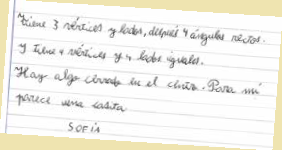 tiene 3 vértices y lados, después 4 ángulos rectos.
Y tiene 4 vértices y 4 lados iguales.
Hay algo cerrado en el centro. Para mí
parece una casita
SOFÍA